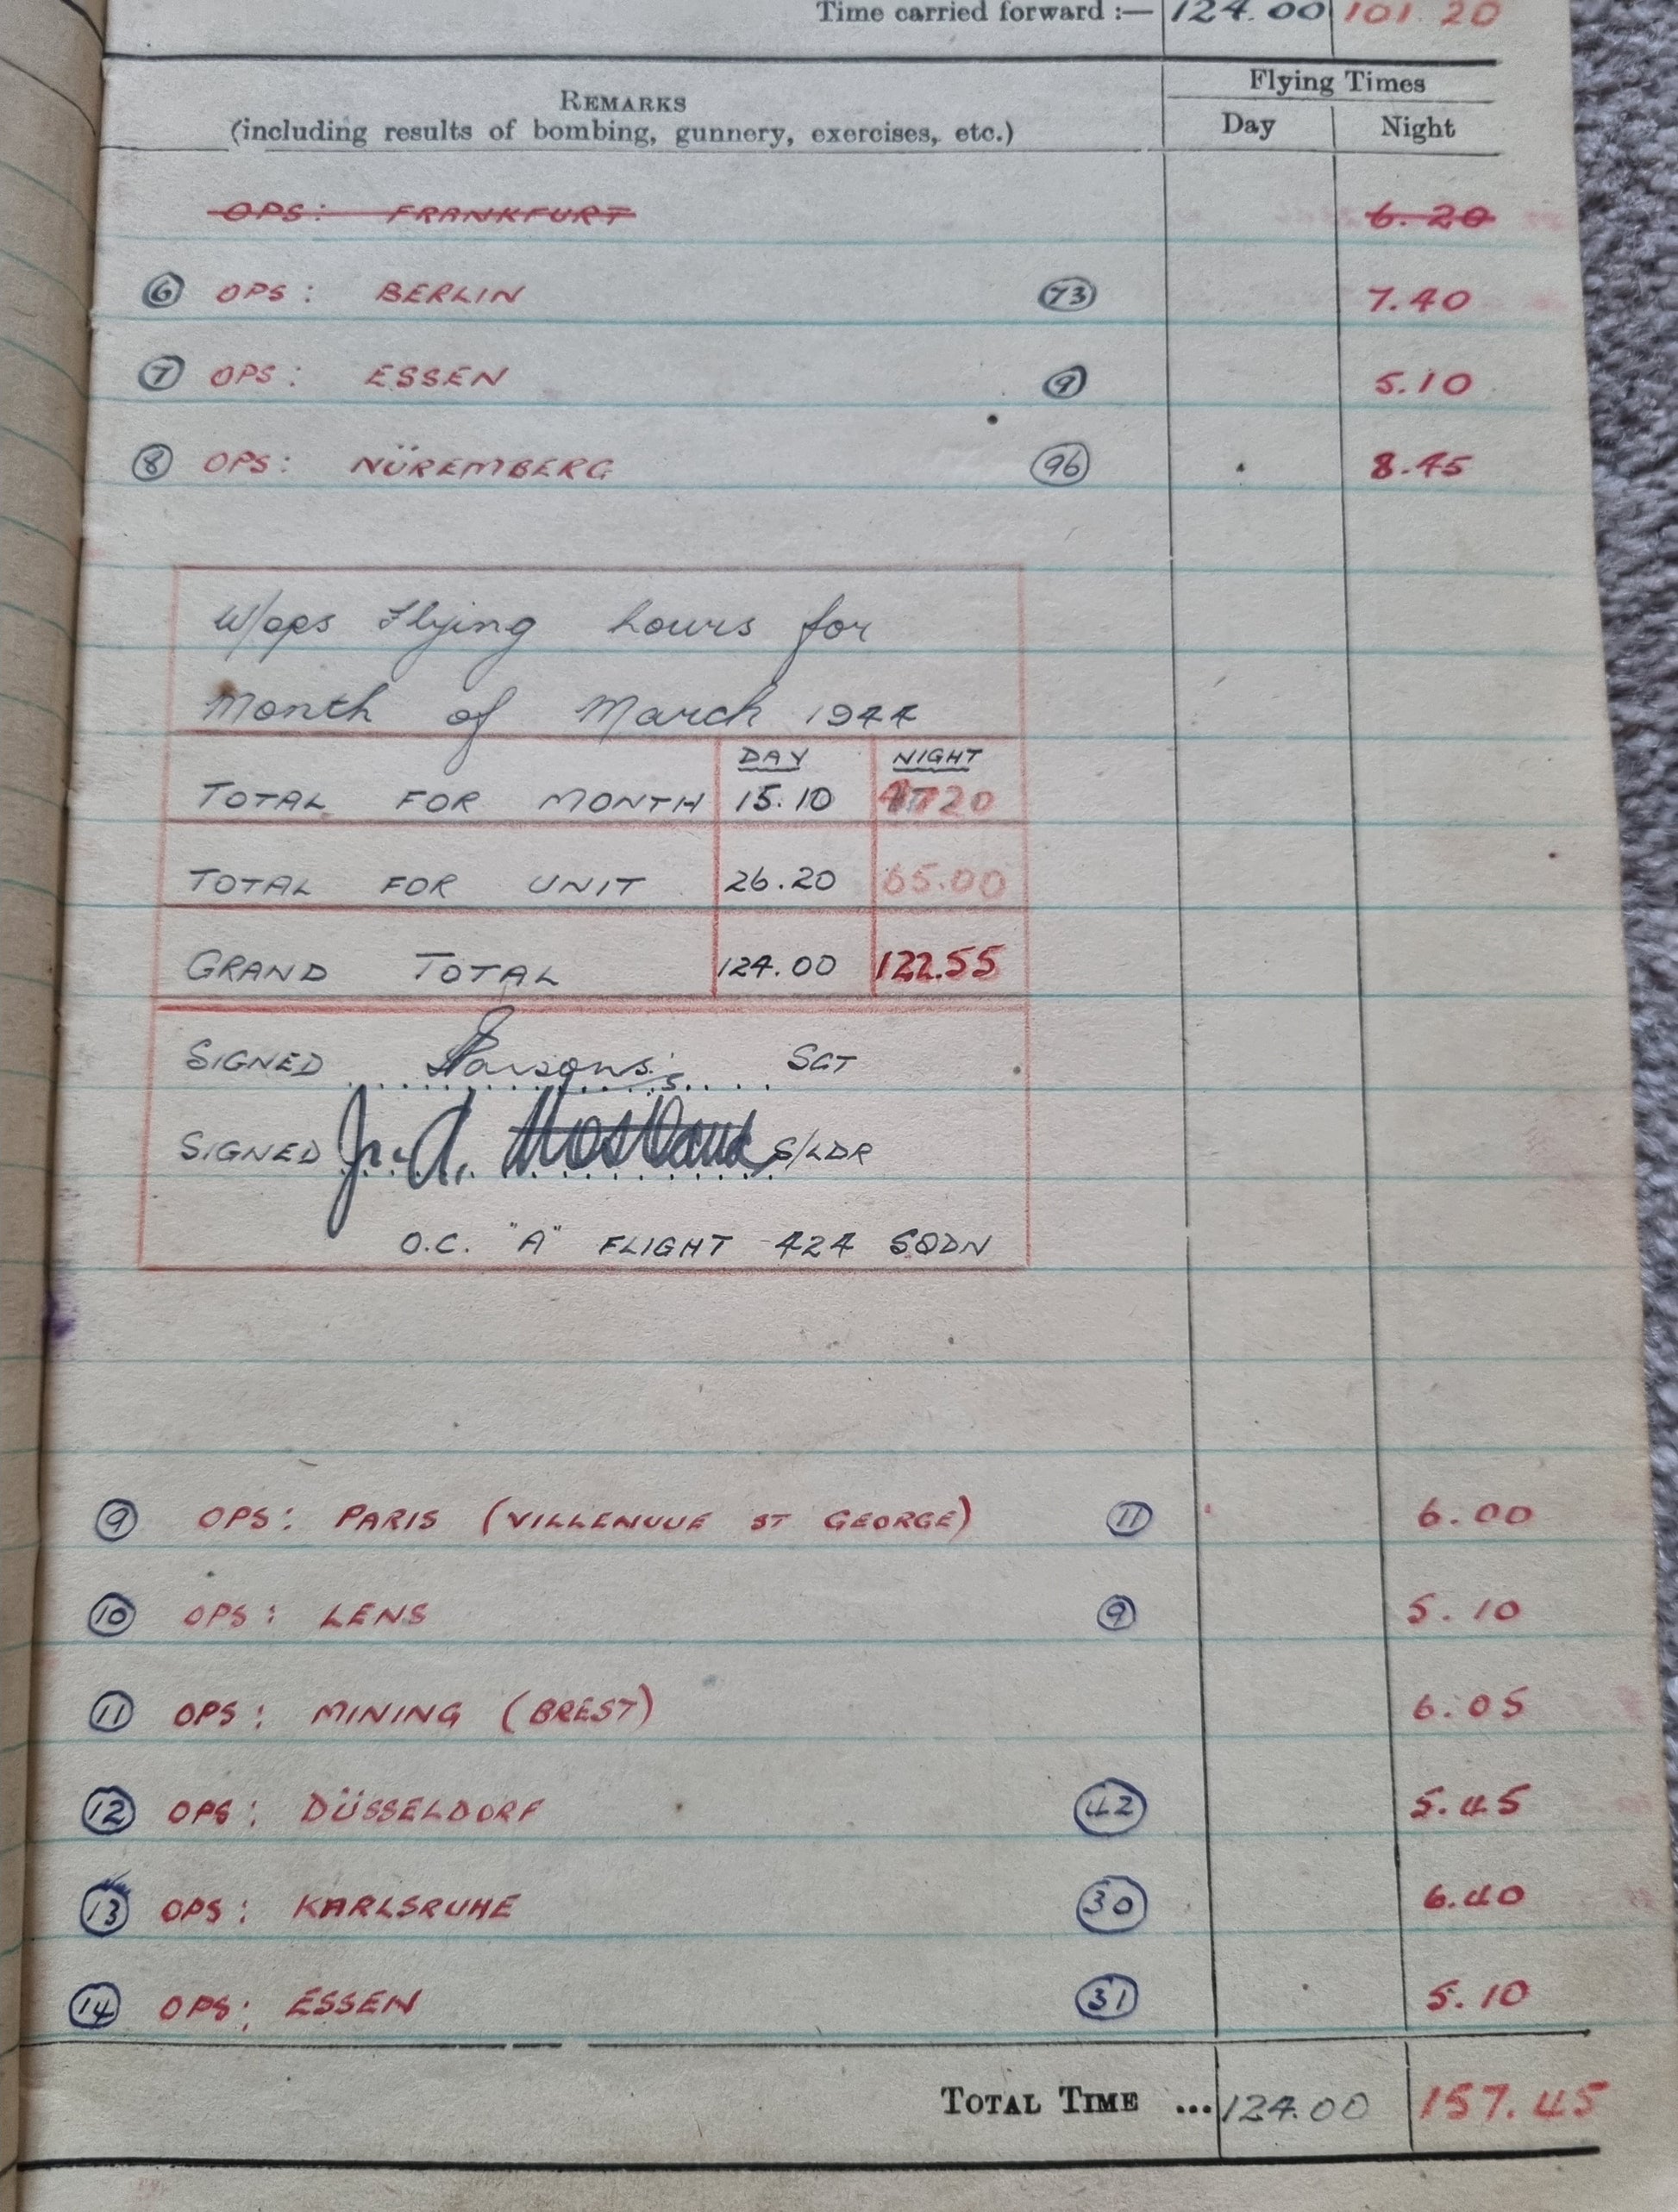 Time carried forward :— 124.00 101.20
Flying Times
REMARKS
(including results of bombing, gunnery, exercises, etc.) Day Night
OPS: FRANKFURT 6.20
6 OPS: BERLIN 73 7.40
7 OPS: ESSEN 9 5.10
8 OPS: NÜREMBERG 96 8.45
W/ops Flying hours for
Month of March 1944
DAY NIGHT
TOTAL FOR MONTH 15.10 20
TOTAL FOR UNIT 26.20 65.00
GRAND TOTAL 124.00 122.55
SIGNED Parsons. SGT
SIGNED S/LDR
O.C. "A" FLIGHT 424 SQDN
9 OPS: PARIS (VILLENUUE ST GEORGE) 11 6.00
10 OPS: LENS 9 5.10
11 OPS: MINING (BREST) 6.05
12 OPS: DÜSSELDORF 42 5.45
13 OPS: KARLSRUHE 30 6.40
14 OPS: ESSEN 31 5.10
TOTAL TIME ... 124.00 157.45